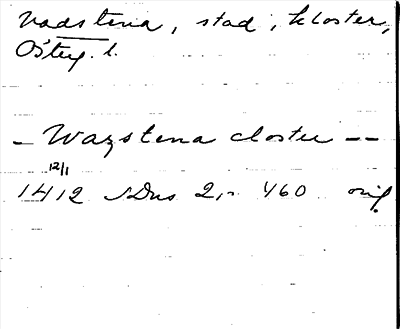 Vadstena, stad, kloster,
Östg. l.
- Wazstena closter --
12/1
1412 SDns 2, 460 orig.